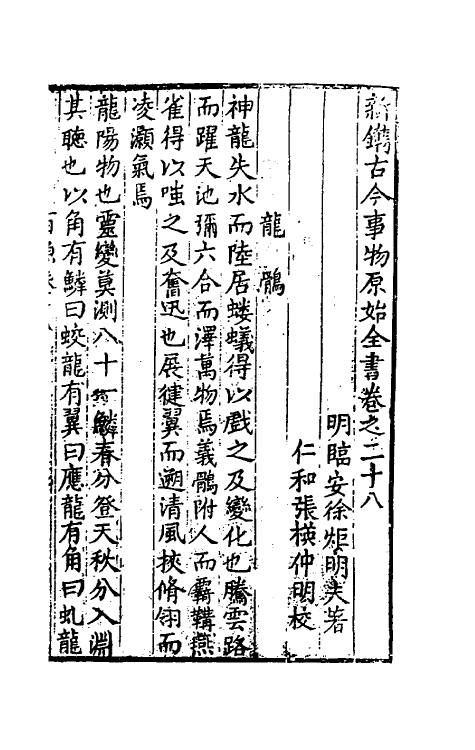 新鐫古今事物原始全書卷之二十八
明臨安徐炬明夫著
仁和張橫仲明校
龍 鶻
神龍失水而陸居螻蟻得以戲之及變化也騰雲路
而躍天池彌六合而澤萬物焉義鶻附人而霸鞲燕
雀得以嗤之及奮迅也展健翼而遡清風挾脩翎而
凌灝氣焉
龍陽物也靈變莫測八十一鱗春分登天秋分入淵
其聰也以角有鱗曰蛟龍有翼曰應龍有角曰虬龍